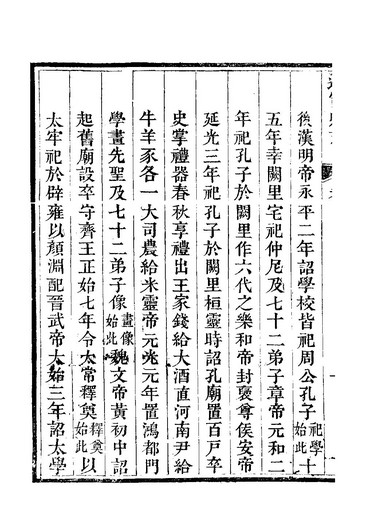 後漢明帝永平二年詔學校皆祀周公孔子祀學始此十
五年幸闕里宅祀仲尼及七十二弟子章帝元和二
年祀孔子於闕里作六代之樂和帝封褒尊侯安帝
延光三年祀孔子於闕里桓靈時詔孔廟置百戸卒
史掌禮器春秋享禮出王家錢給大酒直河南尹給
牛羊豕各一大司農給米靈帝元光元年置鴻都門
學畫先聖及七十二弟子像畫像始此魏文帝黃初中詔
起舊廟設卒守齊王正始七年令太常釋奠釋奠始此以
太牢祀於辟雍以顏淵配晉武帝太始三年詔太學